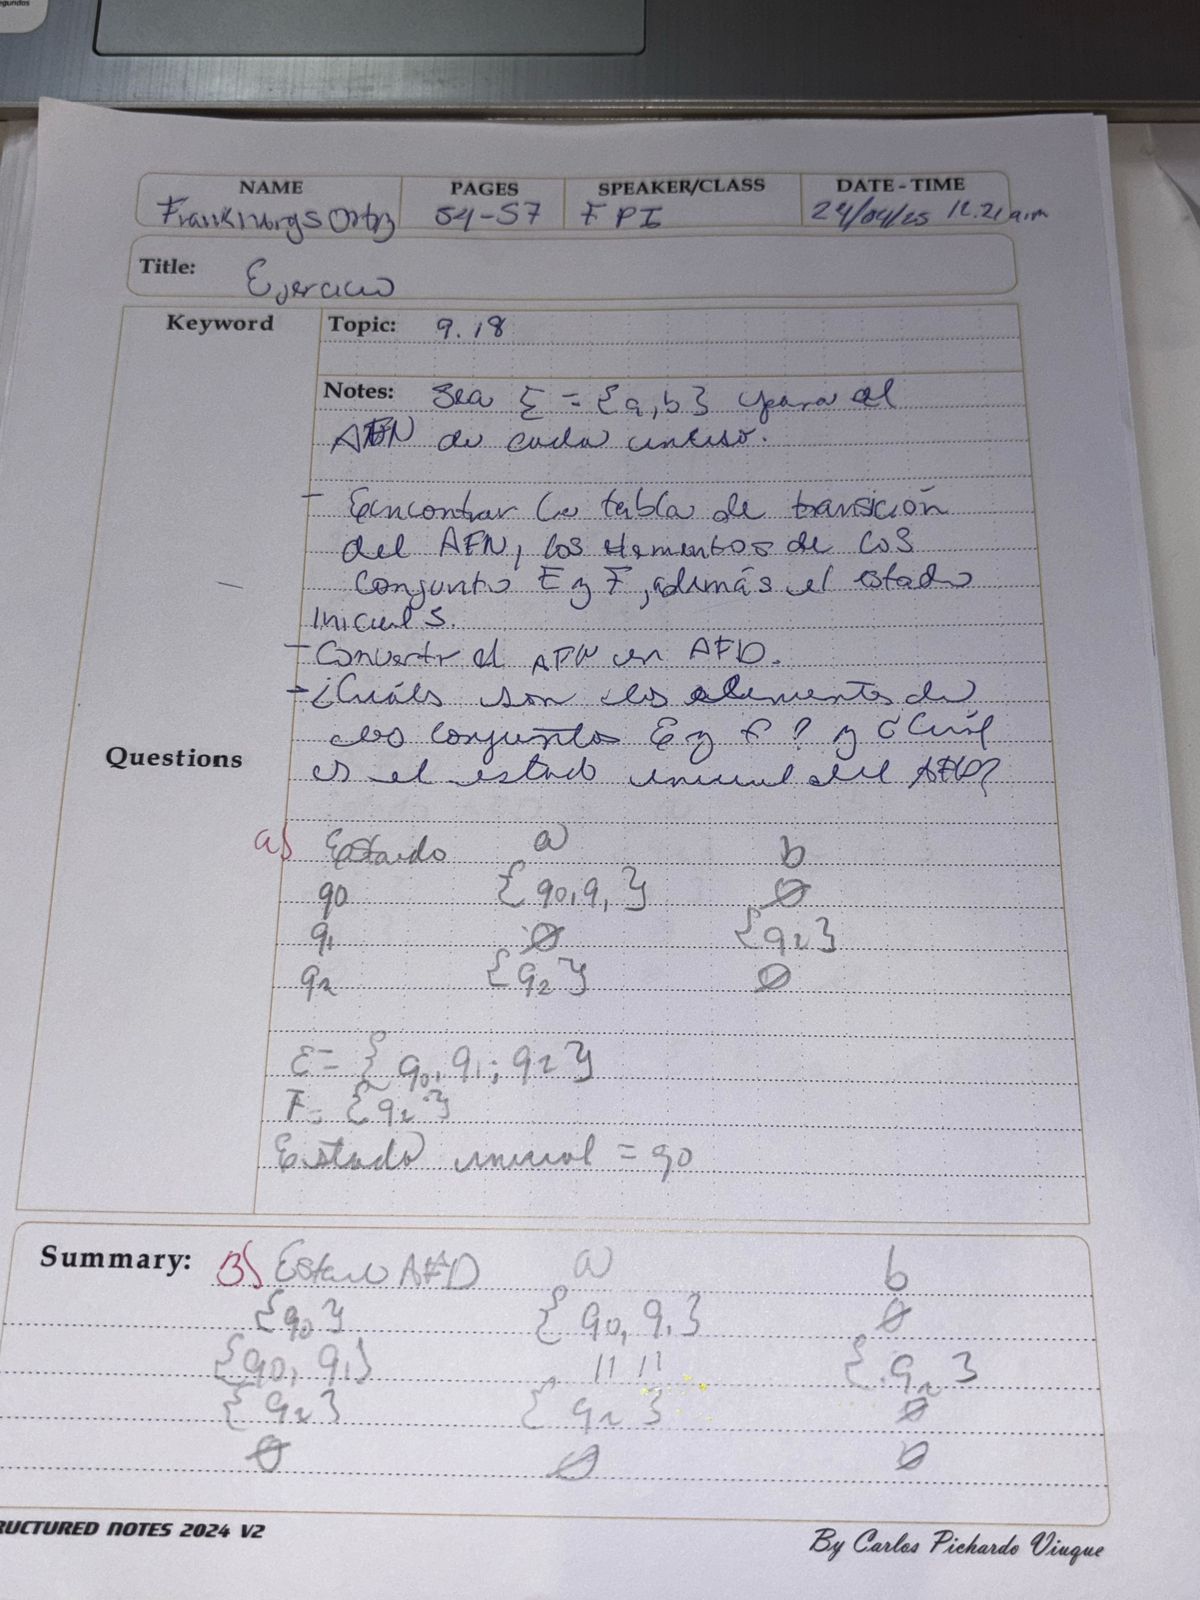 egundos
NAME PAGES SPEAKER/CLASS DATE - TIME
54-57 FPI 24/04/25 11.21 a.m
Title: Ejercicio
Keyword Topic: 9.18
Notes: Sea Σ = {a, b} y para el
AFN de cada inciso.
- Encontrar la tabla de transición
del AFN, los elementos de los
conjunto E y F, además el estado
inicial S.
- Convertir el AFN en AFD.
- ¿Cuáls son los elementos de
los conjuntos E y F? y ¿Cuál
es el estado inicial del AFD?
Questions
a) Estado a b
q0 {q0, q1} ∅
q1 ∅ {q2}
q2 {q2} ∅
E = {q0, q1; q2}
F = {q2}
Estado inicial = q0
Summary: B) Estado AFD a b
{q0} {q0, q1} ∅
{q0, q1} " " {q2}
{q2} {q2} ∅
∅ ∅ ∅
RUCTURED NOTES 2024 V2
By Carlos Pichardo Viuque